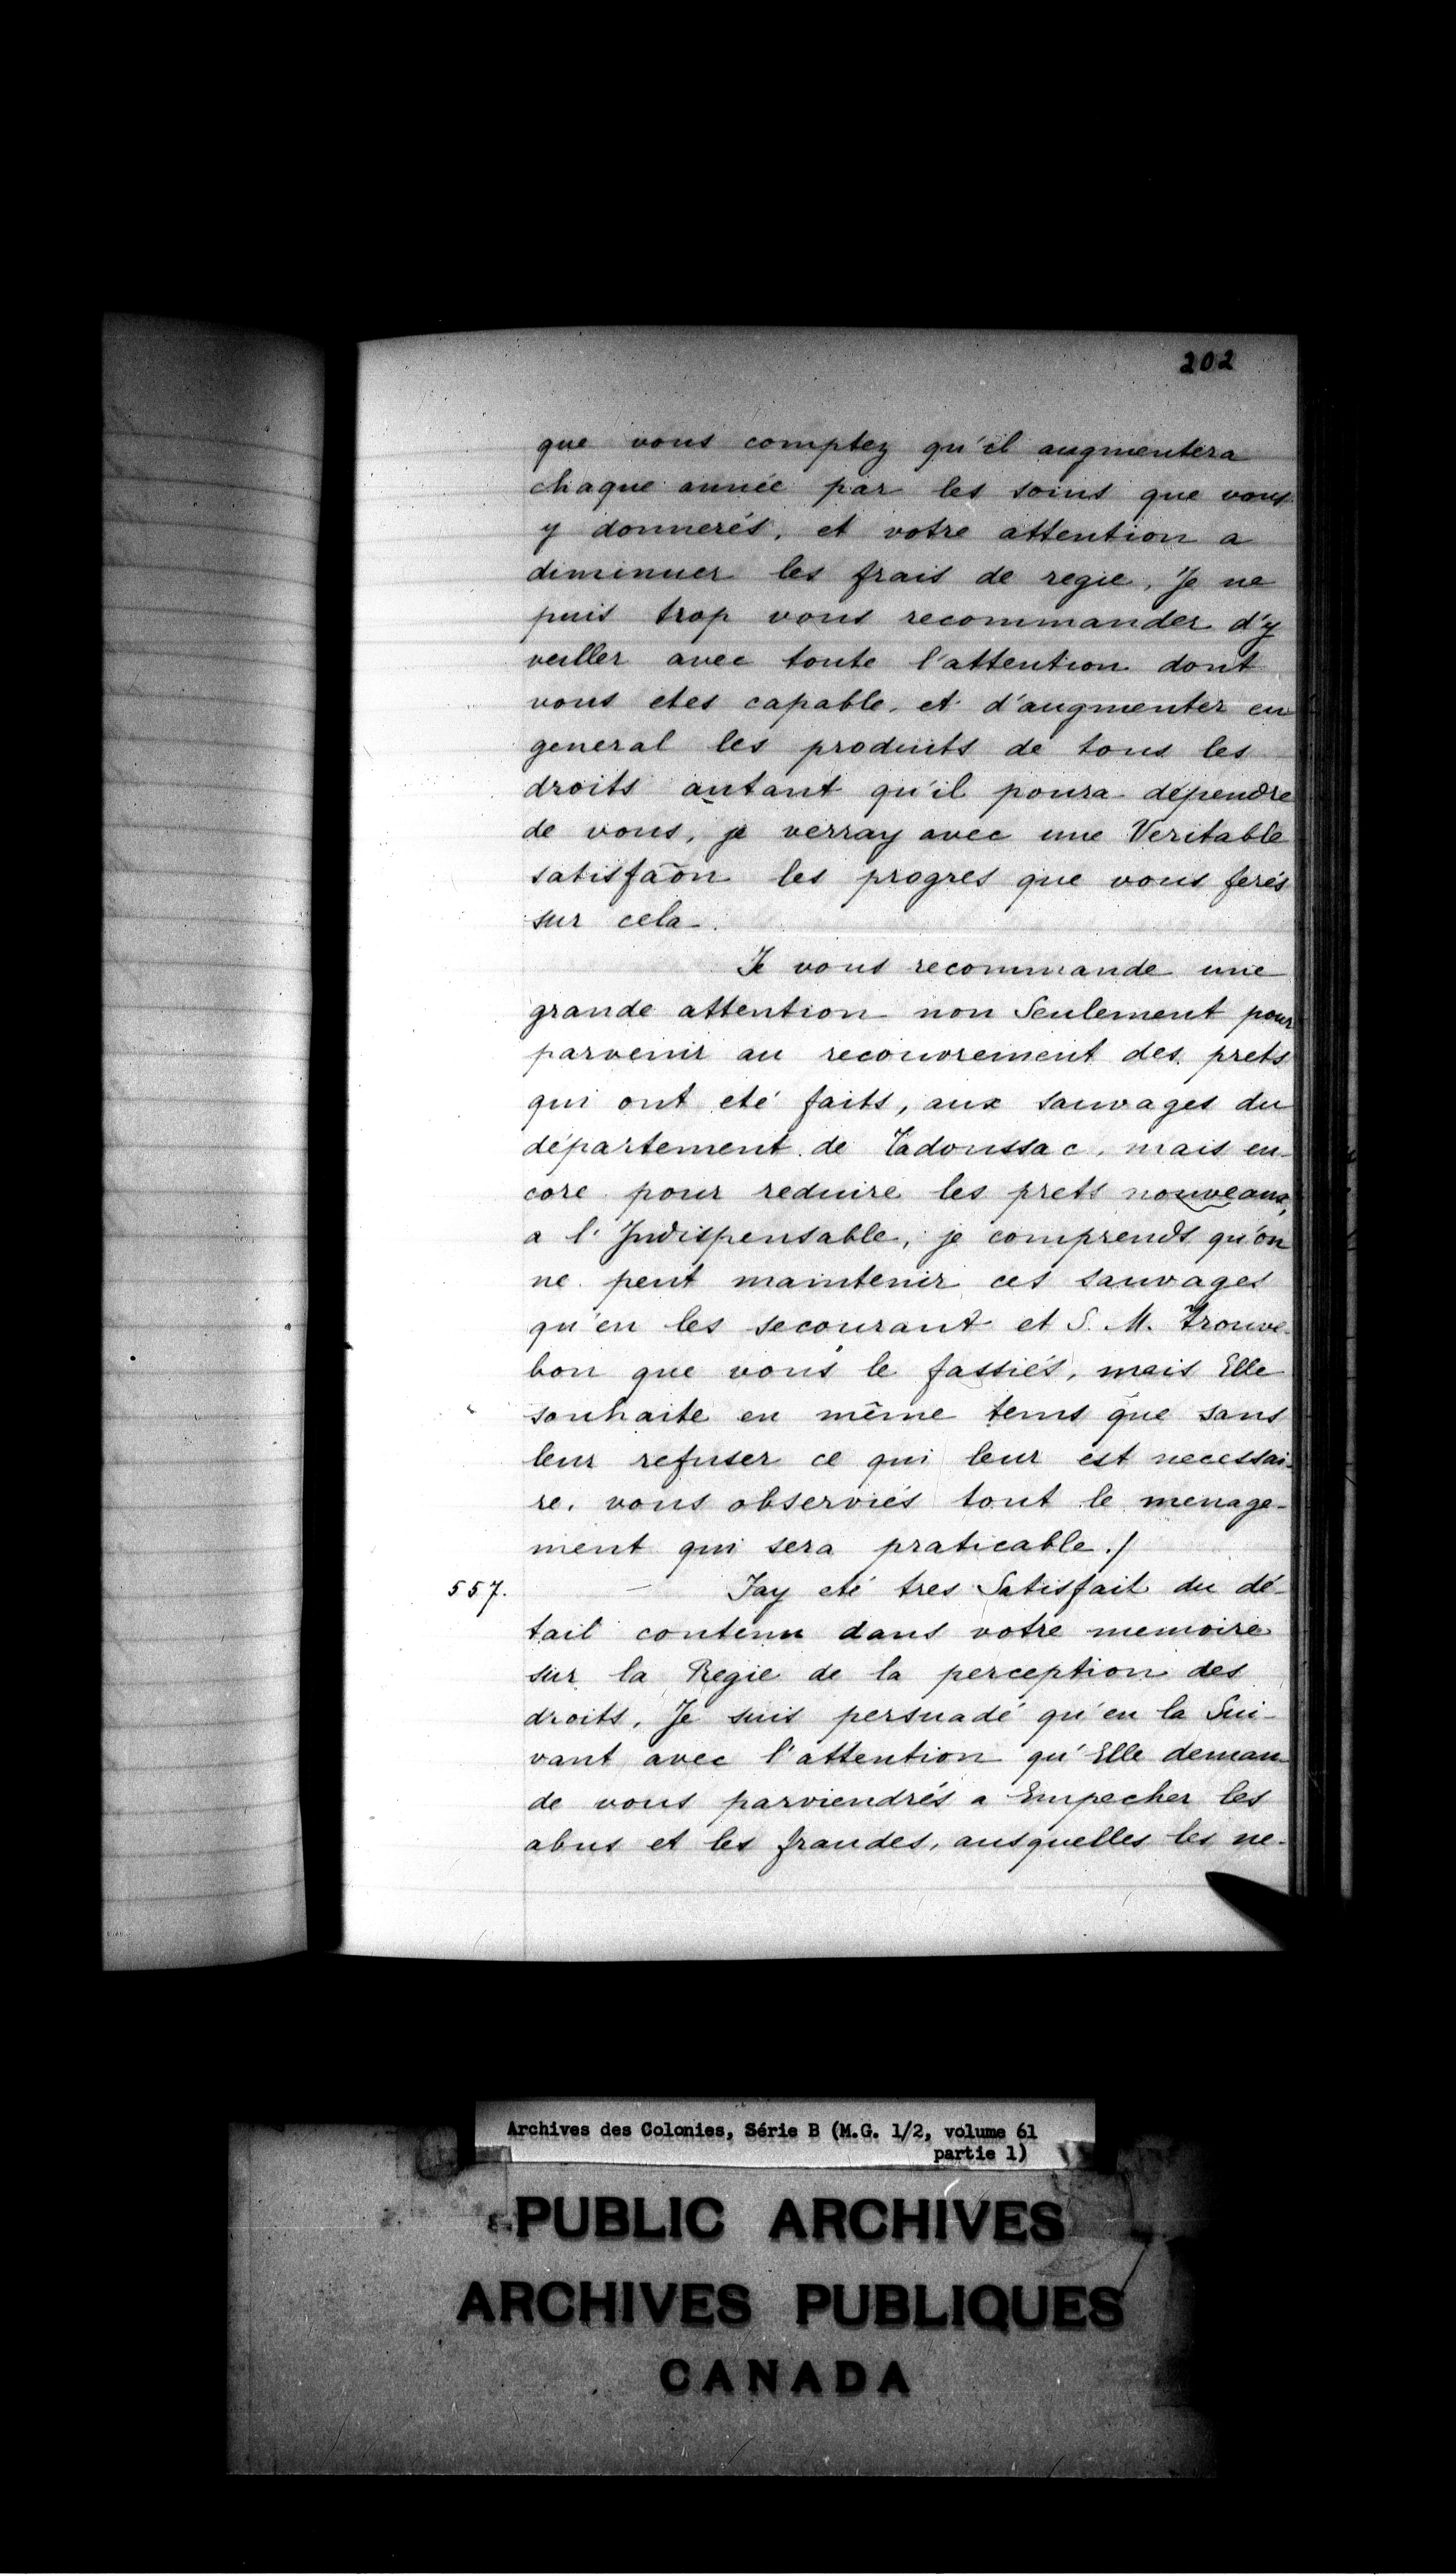 202
que vous comptez qu'il augmentera
chaque année par les soins que vous
y donnerés, et votre attention a
diminuer les frais de regie. Je ne
puis trop vous recommander d'y
veiller avec toute l'attention dont
vous etes capable, et d'augmenter en
general les produits de tous les
droits autant qu'il poura dépendre
de vous, je verray avec une Veritable
satisfaõn les progres que vous ferés
sur cela.
Je vous recommande une
grande attention non Seulement pour
parvenir au recouvrement des prets
qui ont eté faits, aux sauvages du
département de Tadoussac, mais en-
core pour reduire les prets nouveaux,
a l'Indispensable, je comprends qu'on
ne peut maintenir ces sauvages
qu'en les secourant et S. M. trouve
bon que vous le fassiés, mais Elle
souhaite en même tems que sans
leur refuser ce qui leur est necessai-
re, vous observiés tout le menage-
ment qui sera praticable./
557. Jay eté tres Satisfait du dé-
tail contenu dans votre memoire
sur la Regie de la perception des
droits, Je suis persuadé qu'en la Sui-
vant avec l'attention qu'Elle deman-
de vous parviendrés a Empecher les
abus et les fraudes, ausquelles les ne-
Archives des Colonies, Série B (M.G. 1/2, volume 61
partie 1)
PUBLIC ARCHIVES
ARCHIVES PUBLIQUES
CANADA